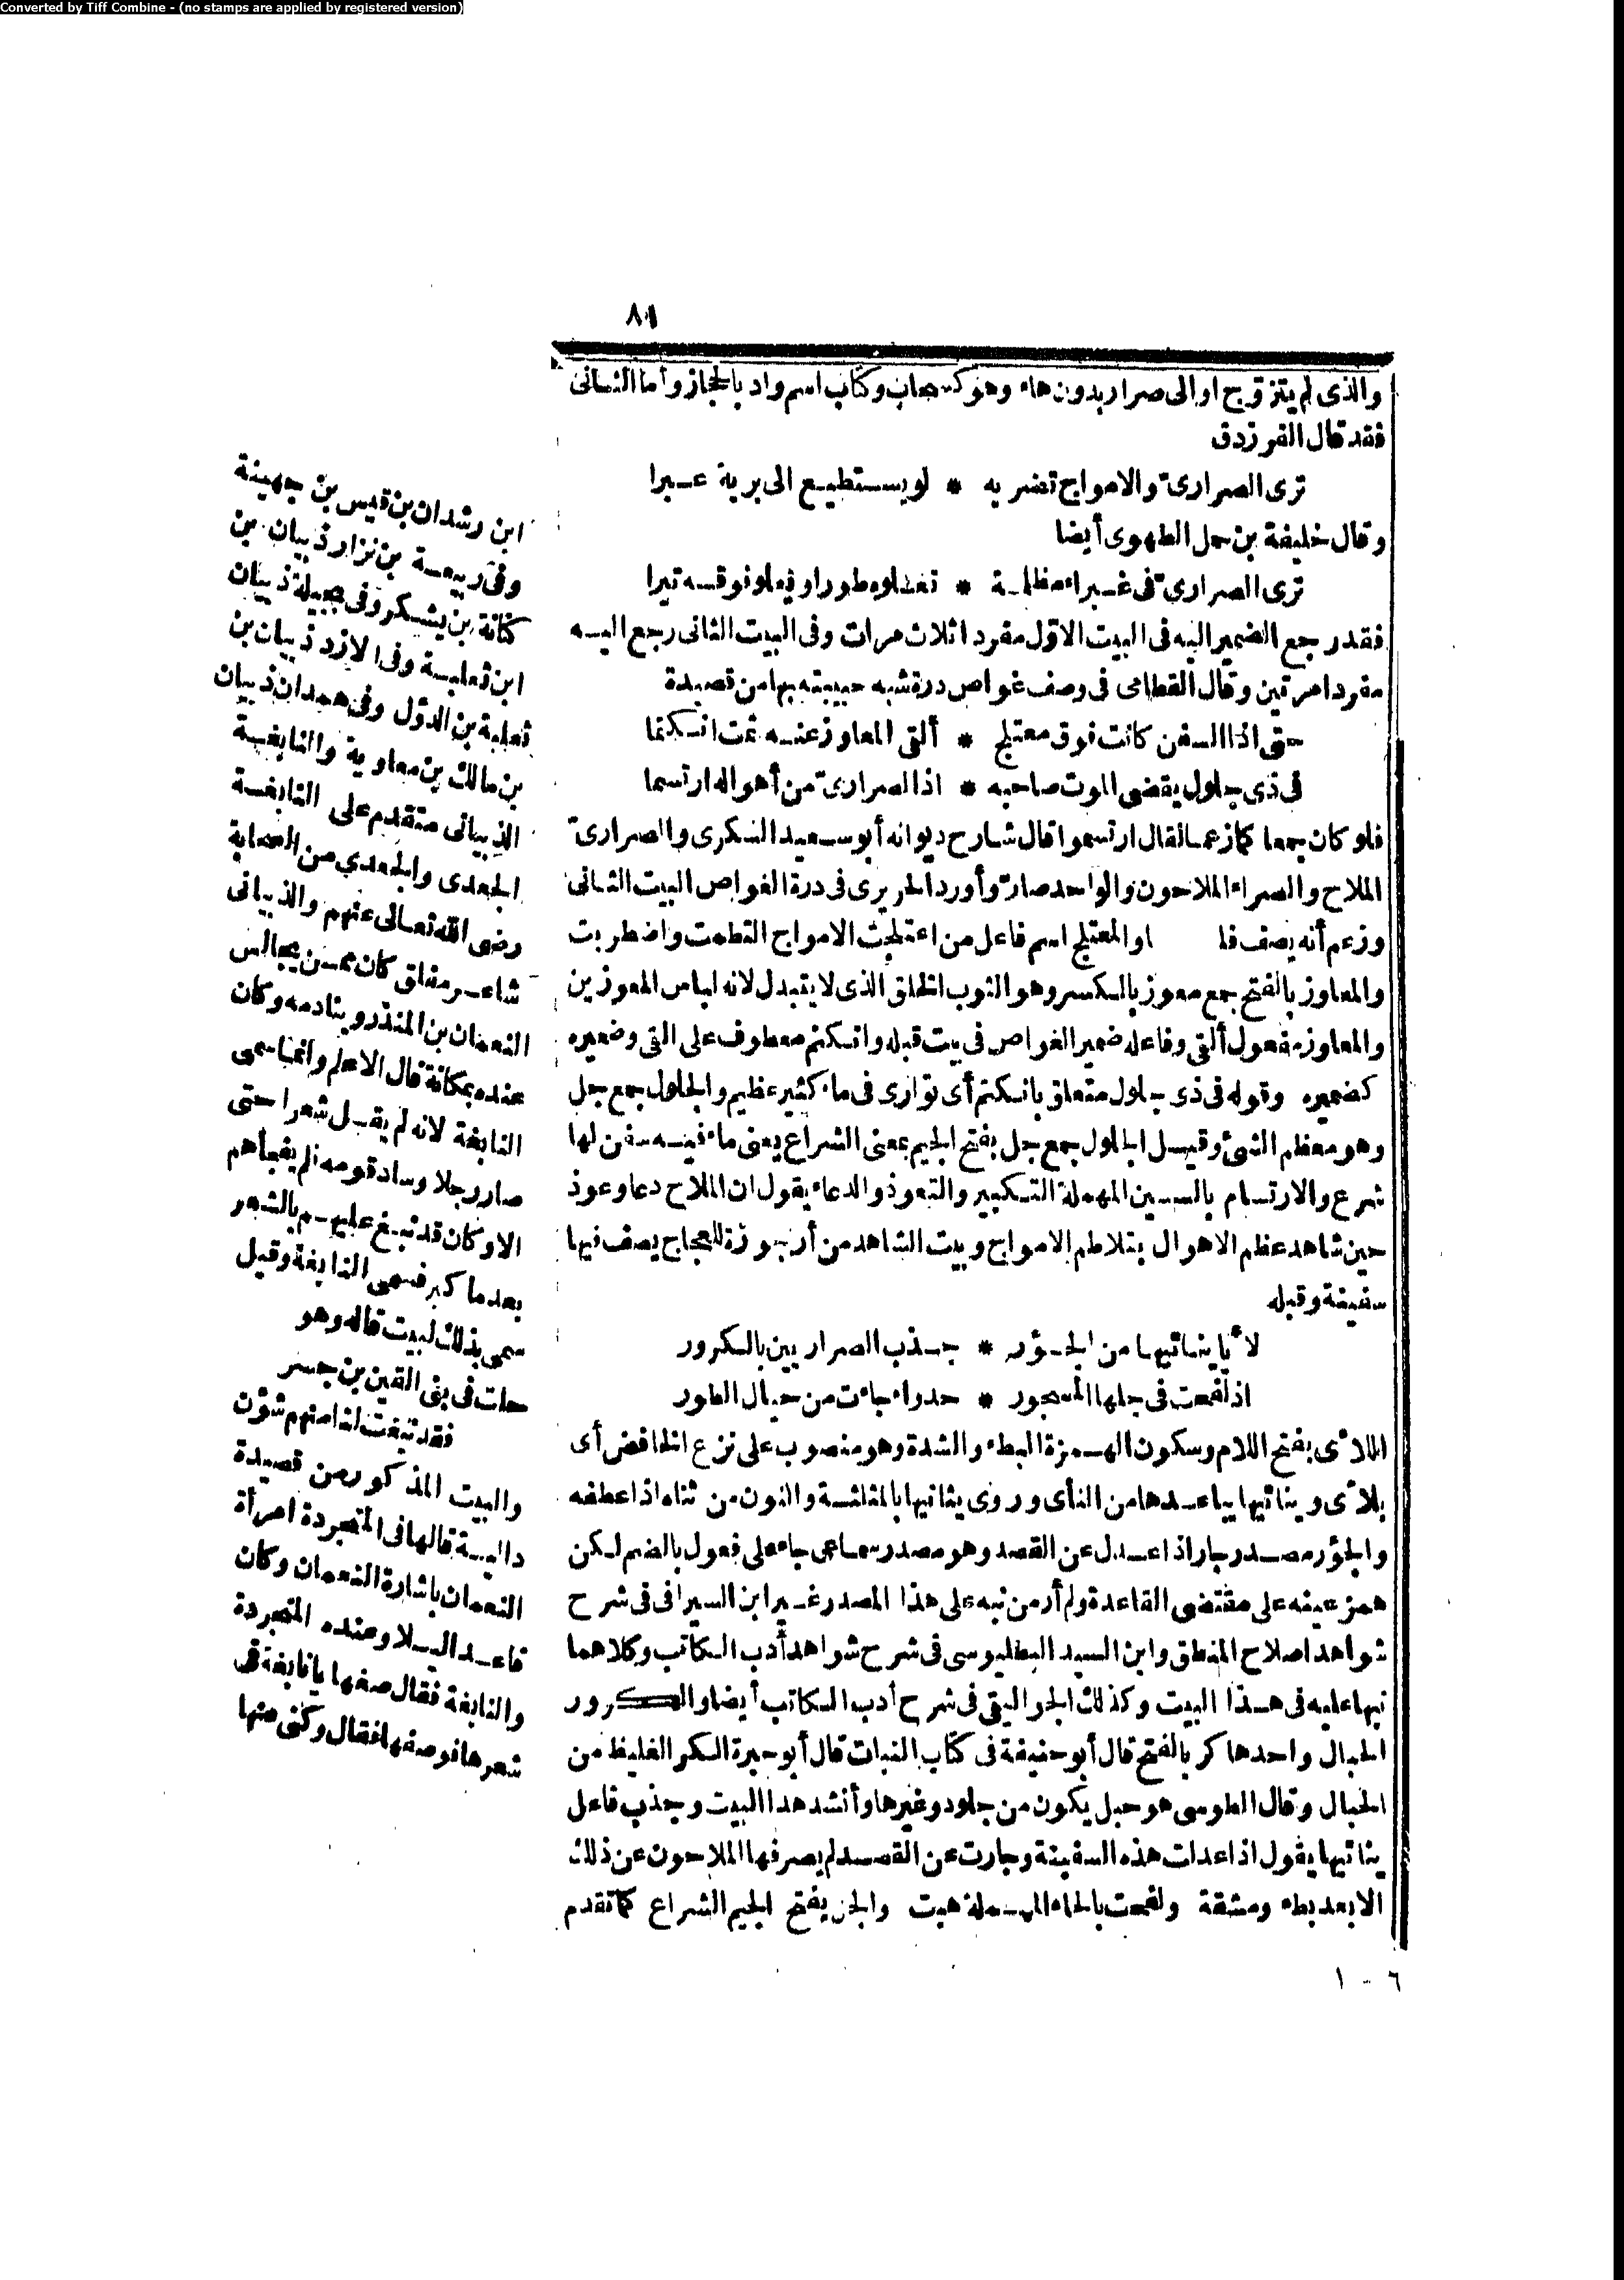 Converted by Tiff Combine - (no stamps are applied by registered version)
٨١
والذى لم يتزوج اوالى صرار بدون هاء وهو كسحاب وكتاب اسم واد بالحجاز وأما الثانى
فقد قال الفرزدق
ترى الصرارىّ والامواج تضربه * لو يستطيع الى برية عبرا
وقال خليفة بن حمل الطهوى أيضا
ترى الصرارىّ فى غبراء مظلمة * تعلوه طورا ويعلو فوقه تيرا
فقد رجع الضمير اليه فى البيت الاوّل مفردا ثلاث مرات وفى البيت الثانى رجع اليه
مفردا مرتين وقال القطامى فى وصف غواص درة شبه حبيبته بها من قصيدة
حتى اذا السفن كانت فوق معتلج * ألقى المعاوز عنه ثمت انكتما
فى ذى جلول يقضى الموت صاحبه * اذا الصرارىّ من أهواله ارتسما
فلو كان جمعا كما زعما لقال ارتسموا قال شارح ديوانه أبو سعيد السكرى والصرارىّ
الملاح والصراء الملاحون والواحد صارّ وأورد الحريرى فى درة الغواص البيت الثانى
وزعم أنه يصف فا او المعتلج اسم فاعل من اعتلجت الامواج التطمت واضطربت
والمعاوز بالفتح جمع معوز بالكسر وهو الثوب الخلق الذى لا يتبدل لانه لباس المعوزين
والمعاوز مفعول ألقى وفاعله ضمير الغواص فى بيت قبله وانكتم معطوف على القى وضميره
كضميره وقوله فى ذى جلول متعلق بانكتم أى توارى فى ماء كثير عظيم والجلول جمع جل
وهو معظم الشئ وقيل الجلول جمع جل بفتح الجيم بمعنى الشراع يعنى ماء فيه سفن لها
شرع والارتسام بالسين المهملة التكبير والتعوذ والدعاء يقول ان الملاح دعا وعوذ
حين شاهد عظم الاهوال بتلاطم الامواج وبيت الشاهد من أرجوزة للعجاج يصف فيها
سفينة وقبله
لأيا ينائيها من الجؤر * جذب الصراريين بالكرور
اذ لفحت فى جلها المسجور * حدواء جاءت من حبال الطور
اللأى بفتح اللام وسكون الهمزة البطء والشدة وهو منصوب على نزع الخافض أى
بلأى وينائيها يباعدها من النأى وروى يثانيها بالمثلثة والنون من ثناه اذا عطفه
والجؤر مصدر جار اذا عدل عن القصد وهو مصدر سماعى جاء على فعول بالضم لكن
همز عينه على مقتضى القاعدة ولم أر من نبه على هذا المصدر غير ابن السيرافى فى شرح
شواهد اصلاح المنطق وابن السيد البطليوسى فى شرح شواهد أدب الكاتب وكلاهما
نبها عليه فى هذا البيت وكذلك الجواليقى فى شرح أدب الكاتب أيضا والكرور
الحبال واحدها كر بالفتح قال أبو حنيفة فى كتاب النبات قال أبو خيرة الكر الغليظ من
الحبال وقال الطوسى هو حبل يكون من جلود وغيرها وأنشد هذا البيت وجذب فاعل
ينائيها يقول اذا عدلت هذه السفينة وجارت عن القصد لم يصرفها الملاحون عن ذلك
الا بعد بطء ومشقة ولفحت بالحاء المهملة هبت والجل بفتح الجيم الشراع كما تقدم
٦ - ١
ابن رشدان بن قيس بن جهينة
وفى ربيعة بن نزار ذبيان بن
كنانة بن يشكر وفى بجيلة ذبيان
ابن ثعلبة وفى الازد ذبيان بن
ثعلبة بن الدؤل وفى همدان ذبيان
بن مالك بن معاوية والنابغة
الذبيانى متقدم على النابغة
الجعدى والجعدي من الصحابة
رضى الله تعالى عنهم والذبيانى
شاعر مفلق كان ممن يجالس
النعمان بن المنذر وينادمه وكان
عنده بمكانة قال الاعلم وانما سمى
النابغة لانه لم يقل شعرا حتى
صار رجلا وساد قومه فلم يفجأهم
الا وكان قد نبغ عليهم بالشعر
بعد ما كبر فسمى النابغة وقيل
سمى بذلك لبيت قاله وهو
حلت فى بنى القين بن جسر
فقد نبغت لنا منهم شؤن
والبيت المذكور من قصيدة
دالية قالها فى المتجردة امرأة
النعمان باشارة النعمان وكان
قاعدا ليلا وعنده المتجردة
والنابغة فقال صفها يا نابغة فى
شعرها فوصفها فقال وكنى عنها